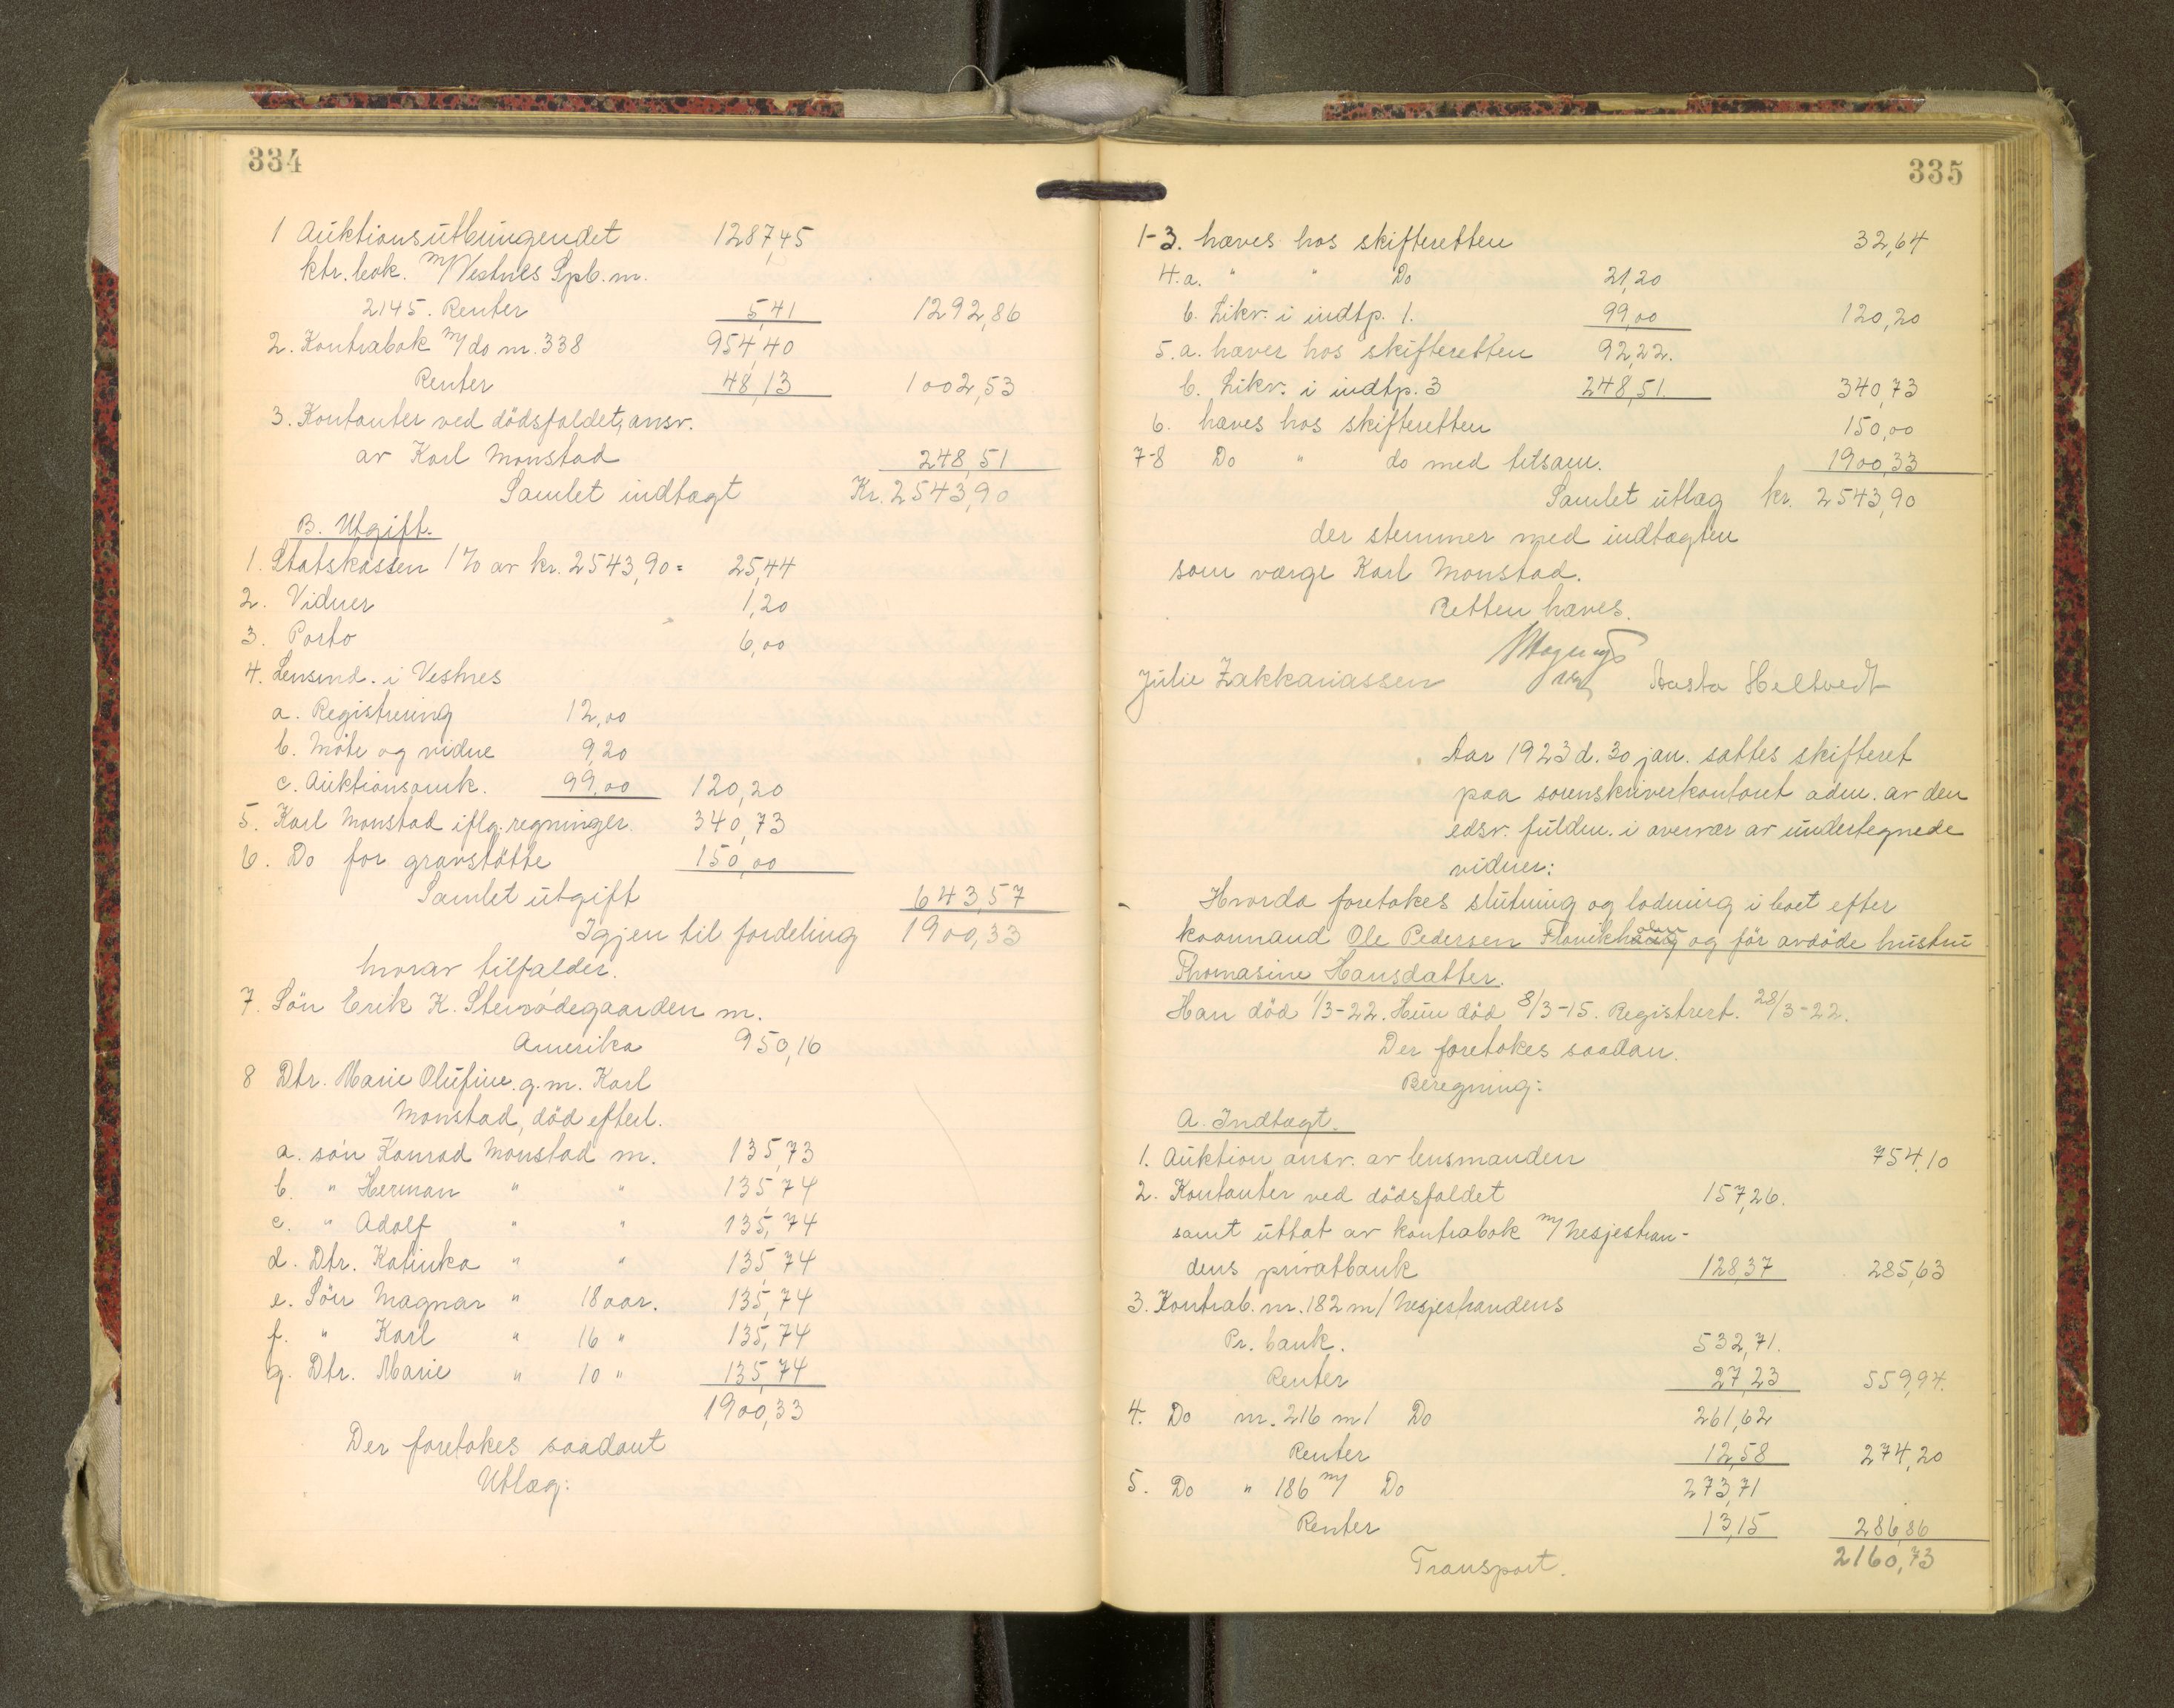 334
1 Auktionsutbringendet 1287,45
ktr. bok. m/Vestnes Spb. nr.
2145. Renter 5,41 1292,86
2. Kontrabok m/ do nr. 338 954,40
Renter 48,13 1002,53
3. Kontanter ved dödsfaldet, ansv.
av Karl Monstad 248,51
Samlet indtægt Kr. 2543,90
B. Utgift.
1. Statskassen 1% av kr. 2543,90 = 25,44
2. Vidner 1,20
3. Porto 6,00
4. Lensmd. i Vestnes
a. Registrering 12,00
b. Möte og vidne 9,20
c. Auktionsomk. 99,00 120,20
5. Karl Monstad iflg. regninger. 340,73
6. Do for gravstötte 150,00
Samlet utgift 643,57
Igjen til fordeling 1900,33
hvorav tilfalder.
7. Sön Erik K. Stenödegaarden m.
Amerika 950,16
8 Dtr. Marie Olufine g.m. Karl
Monstad, död efterl.
a. sön Konrad Monstad m. 135,73
b. " Herman " " 135,74
c. " Adolf " " 135,74
d. Dtr. Katinka " " 135,74
e. Sön Magnar " 18 aar. 135,74
f. " Karl " 16 " 135,74
g. Dtr. Marie " 10 " 135,74
1900,33
Der foretokes saadant
Utlæg:
335
1-3. hæves hos skifteretten 32,64
4. a. " " Do 21,20
b. Likv. i indtp. 1. 99,00 120,20
5. a. hæves hos skifteretten 92,22.
b. Likv. i indtp. 3 248,51. 340,73
6. hæves hos skifteretten 150,00
7-8 Do " do med tilsam. 1900,33
Samlet utlæg kr. 2543,90
der stemmer med indtægten
som værge Karl Monstad.
Retten hæves.
Julie Zakkariassen Aasta Heltvedt
Aar 1923 d. 30 jan. sattes skifteret
paa sorenskriverkontoret adm. av den
edsv. fuldm. i overvær av undertegnede
vidner:
Hvorda foretokes slutning og lodning i boet efter
kaarmand Ole Pedersen og för avdöde hustru
Thomasine Hansdatter.
Han död 1/3-22. Hun död 8/3-15. Registrert. 28/3-22.
Der foretokes saadan.
Beregning:
A. Indtægt.
1. Auktion ansv. av lensmanden 754,10
2. Kontanter ved dödsfaldet 157,26.
samt uttat av kontrabok m/ Nesjestran-
dens privatbank 128,37 285,63
3. Kontrab. nr. 182 m/ Nesjestrandens
Pr. bank. 532,71.
Renter 27,23 559,94.
4. Do nr. 216 m/ Do 261,62
Renter 12,58 274,20
5. Do " 186 m/ Do 273,71
Renter 13,15 286,86
Transport. 2160,73